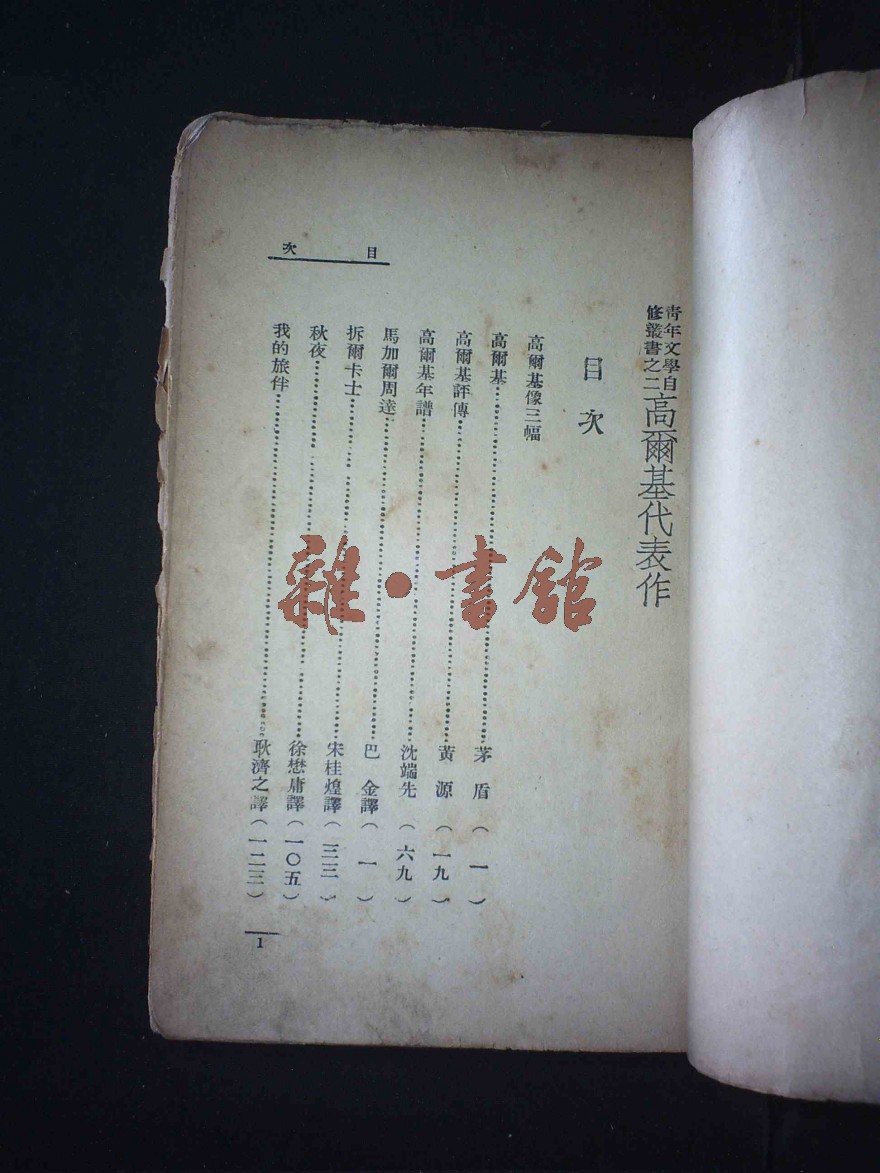 青年文學自
修叢書之二
高爾基代表作
目次
高爾基像三幅
高爾基……茅盾（一）
高爾基評傳……黃源（一九）
高爾基年譜……沈端先（六九）
馬加爾周達……巴金譯（一）
拆爾卡士……宋桂煌譯（三三）
秋夜……徐懋庸譯（一〇五）
我的旅伴……耿濟之譯（一二三）
目次
1
雜·書館